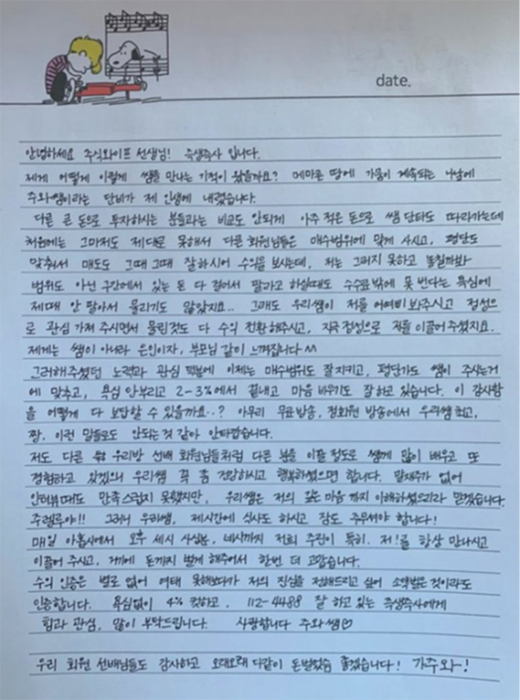 date.
안녕하세요 주식와이프 선생님! 즉생즉사 입니다.
제게 어떻게 이렇게 쌤을 만나는 기적이 왔을까요? 메마른 땅에 가뭄이 계속되는 나날에
주와쌤이라는 단비가 제 인생에 내렸습니다.
다른 큰 돈으로 투자하시는 분들과는 비교도 안되게 아주 적은 돈으로 쌤 단타도 따라가는데
처음에는 그마저도 제대로 못해서 다른 회원님들은 매수범위에 맞게 사시고, 평단도
맞춰서 매도도 그때 그때 잘하시어 수익을 보시는데, 저는 그러지 못하고 놓칠까봐
범위도 아닌 구간에서 있는 돈 다 걸어서 팔라고 하실때도 수수료밖에 못 번다는 욕심에
제때 안 팔아서 물리기도 많았지요.. 그래도 우리쌤이 저를 어여삐 봐주시고 정성으
로 관심 가져 주시면서 물린것도 다 수익 전환해주시고, 지극정성으로 저를 이끌어 주셨지요.
제게는 쌤이 아니라 은인이자, 부모님 같이 느껴집니다 ^^
그러해주셨던 노력과 관심 덕분에 이제는 매수범위도 잘 지키고, 평단가도 쌤이 주시는거
에 맞추고, 욕심 안부리고 2-3%에서 끝내고 마음 비우기도 잘 하고 있습니다. 이 감사함
을 어떻게 다 보답할 수 있을까요..? 아무리 무료방송, 정회원 방송에서 우리쌤 최고,
짱, 이런 말들로도 안되는 것 같아 안타깝습니다.
저도 다른 우리방 선배 회원님들처럼 다른 분을 이끌 정도로 쌤께 많이 배우고 또
경험하고 있겠으니 우리쌤 꼭 좀 건강하시고 행복하셨으면 합니다. 말재주가 없어
인터뷰때도 만족스럽지 못했지만, 우리쌤은 저의 깊은 마음 까지 이해하셨으리라 믿겠습니다.
주렐루야!! 그러니 우리쌤, 제시간에 식사도 하시고 잠도 주무셔야 합니다!
매일 아홉시에서 오후 세시 사십분, 네시까지 저희 주린이 특히, 저!를 항상 만나시고
이끌어 주시고, 거기에 돈까지 벌게 해주어서 한번 더 고맙습니다.
수익 인증은 별로 없어 여태 못해왔다가 저의 진심을 전해드리고 싶어 소액같은 것이라도
인증합니다. 욕심없이 4% 컷하고, 112-4488 잘 하고 있는 즉생즉사에게
힘과 관심, 많이 부탁드립니다. 사랑합니다 주와쌤♡
우리 회원 선배님들도 감사하고 오래오래 다같이 돈벌었음 좋겠습니다! 가주와!